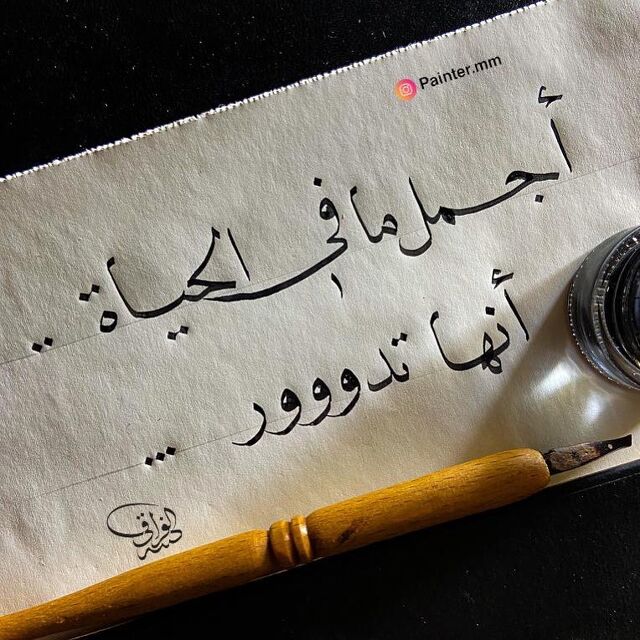 Painter.mm
أجمل ما في الحياة ..
أنها تدووور ...